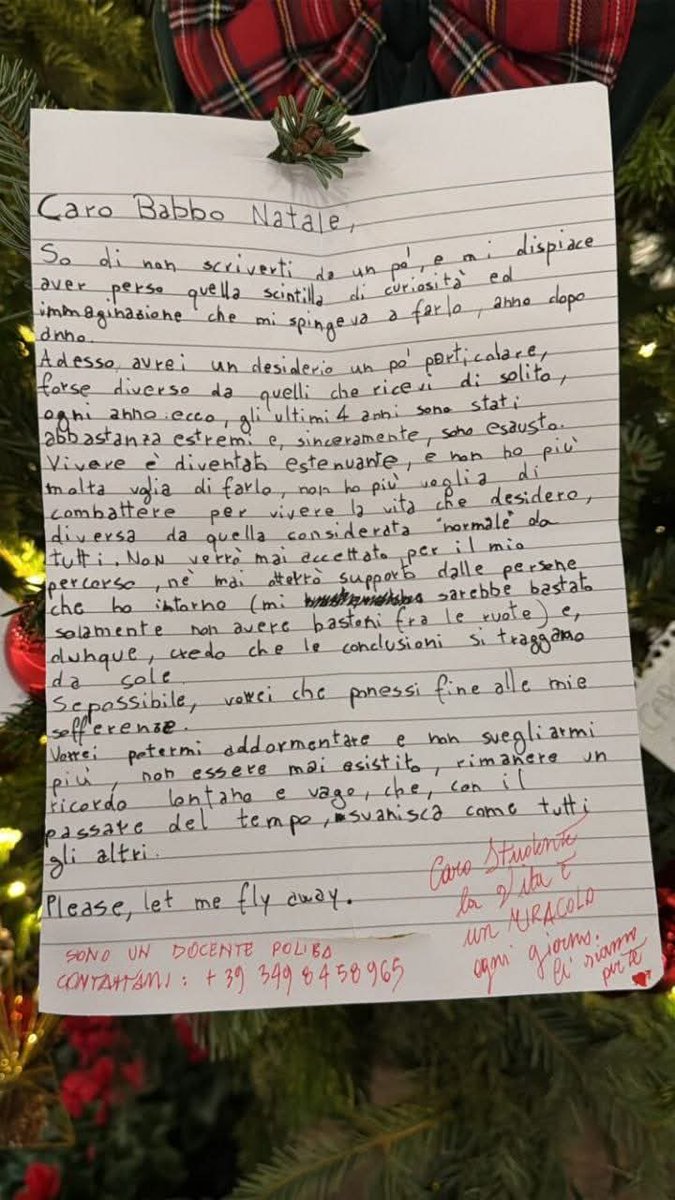 Caro Babbo Natale,
So di non scriverti da un pó, e mi dispiace
aver perso quella scintilla di curiosità ed
immaginazione che mi spingeva a farlo, anno dopo
anno.
Adesso avrei un desiderio un pó particolare,
forse diverso da quelli che ricevi di solito,
ogni anno: ecco, gli ultimi 4 anni sono stati
abbastanza estremi e, sinceramente, sono esausto.
Vivere è diventato estenuante, e non ho più
molta voglia di farlo, non ho più voglia di
combattere per vivere la vita che desidero,
diversa da quella considerata "normale" da
tutti. Non verrò mai accettato per il mio
percorso, nè mai otterrò supporto dalle persone
che ho intorno (mi sarebbe bastato
solamente non avere bastoni fra le ruote) e,
dunque, credo che le conclusioni si traggano
da sole.
Se possibile, vorrei che ponessi fine alle mie
sofferenze.
Vorrei potermi addormentare e non svegliarmi
più, non essere mai esistito, rimanere un
ricordo lontano e vago, che, con il
passare del tempo, svanisca come tutti
gli altri.
Please, let me fly away.
Caro Studente
la Vita è
un MIRACOLO
ogni giorno.
Ci siamo
per te
SONO UN DOCENTE POLIBA
CONTATTAMI: +39 349 8458965